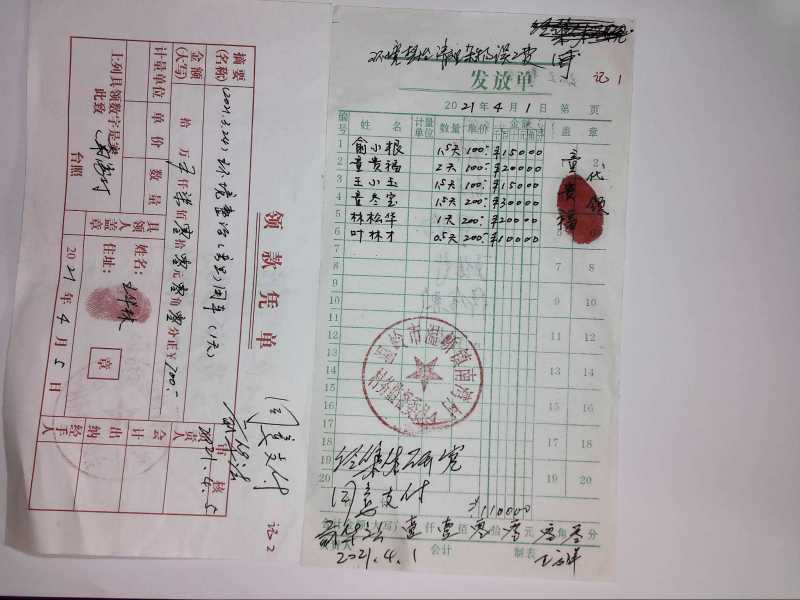 环境整治清理杂物误工费
记1
发放单
2021年4月1日 第 页
编号 姓名 计量单位 数量 单价 金额 盖章
1 俞小根 1.5天 100 ¥15000
2 童贵福 2天 100 ¥20000
3 王小玉 1.5天 100 ¥15000
4 童冬宝 1.5天 200 ¥30000
5 林松华 1天 200 ¥20000
6 叶林才 0.5天 200 ¥10000
7
8
9
10
11
12
13
14
15
16
17
18
19
20
童贵福 代领
7 8
9 10
11 12
13 14
15 16
17 18
19 20
经集体研究
同意支付
¥110000
壹仟壹佰零拾零元零角零分
2021.4.1 会计 制表
领款凭单
摘要(名称)
(2021.3.24)环境整治
用车(1天)
金额(大写) 拾万 仟柒佰零拾零元零角零分正¥700
计量单位 单价 数量
上列具领数字是实
此致
台照
具领人盖章
姓名:
住址:
章
2021年4月5日
审核 负责人 会计 出纳 经手人
同意支付
2021.4.5
记2